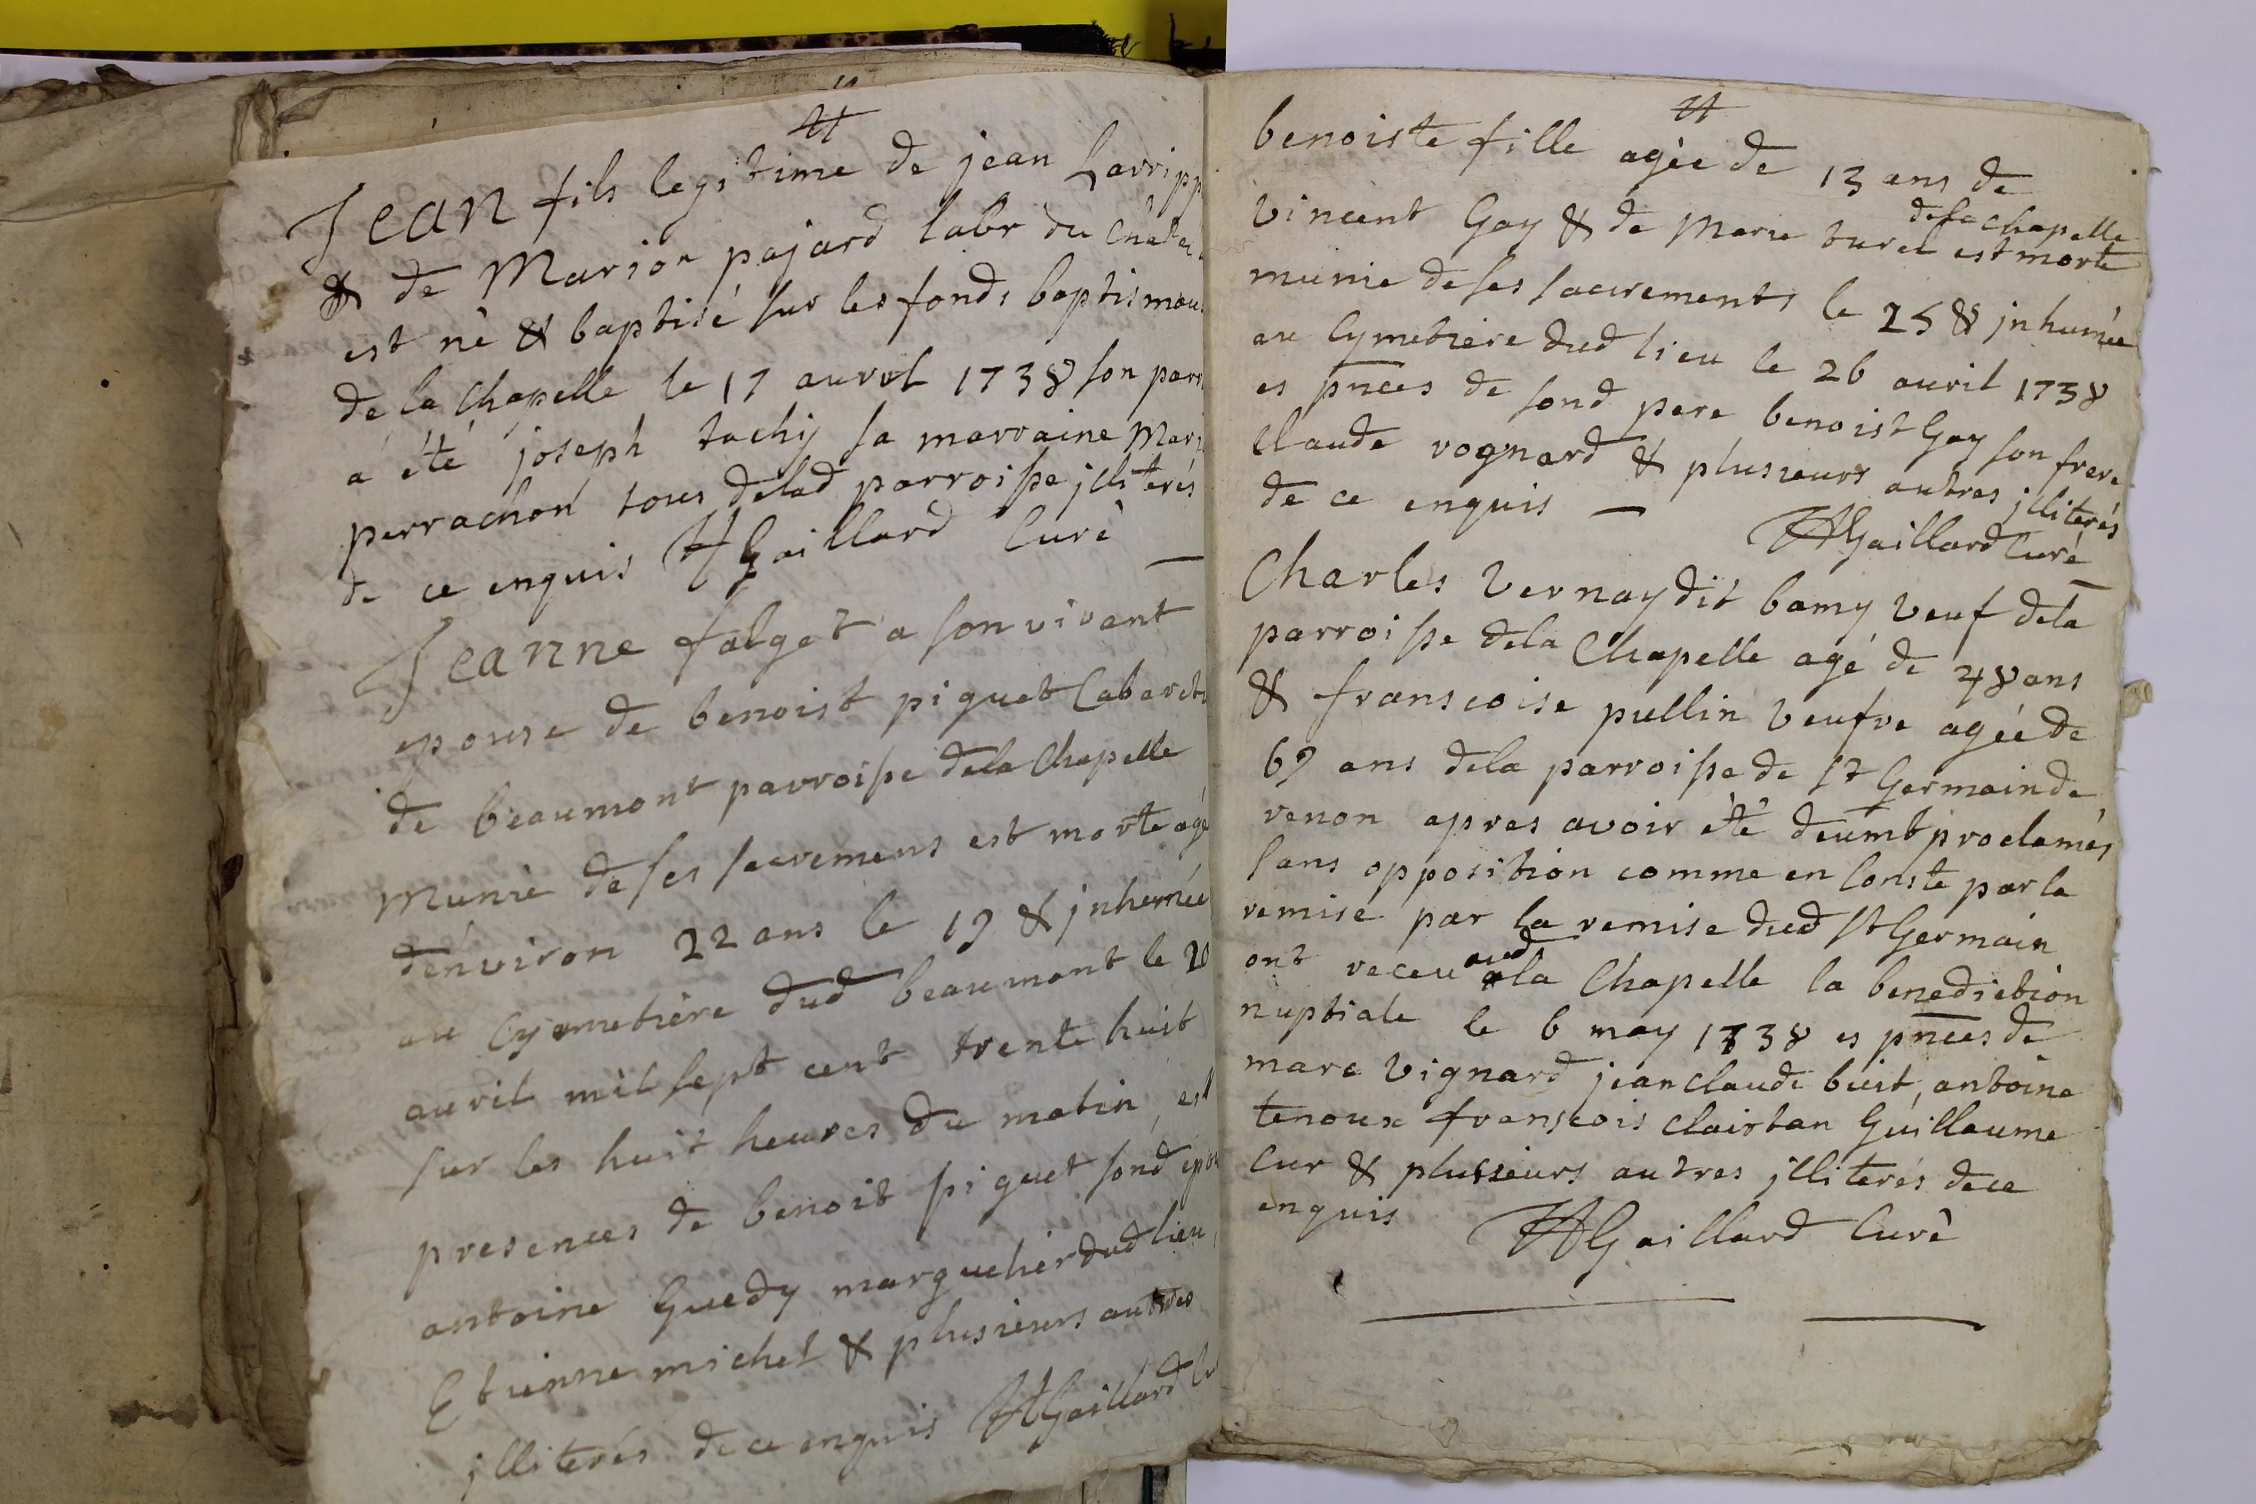 Jean fils legitime de jean Larripp
& de Marion pajard labr du Chate
est né & baptisé sur les fonds baptismau
de la Chapelle le 17 avril 1738 son parr
a été joseph tachy sa marraine Mari
perrachon tous delad parroisse jlliterés
de ce enquis HGaillard Curé
Jeanne falgot a son vivant
epouse de benoist piguet Cabaret
de beaumont parroisse dela Chapelle
Munie de ses sacremens est morte agé
d'environ 22 ans le 19 & jnhumée
au Cymetiére dud beaumont le 20
avril mil sept cent trente huit
sur les huit heures du matin, es
presences de benoit piguet sond epou
antoine Guedy marguelier dud lieu,
Etienne michel & plusieurs autres
jlliterés de ce enquis HGaillard Cu
benoiste fille agée de 13 ans de
de la Chapelle
vincent Gay & de Marie turel est morte
munie de ses sacrements le 25 & jnhumée
au Cymetiere dud lieu le 26 avril 1738
es pnces de sond pere benoist Gay son frere
Claude vognard & plusieurs autres jlliterés
de ce enquis HGaillard Curé
Charles Vernay dit bamy veuf dela
parroisse dela Chapelle agé de 48 ans
& franscoise pullin veufve agée de
69 ans dela parroisse de St Germain de
renon apres avoir été deumt proclamés
sans opposition comme en Conste par la
remise par la remise dud St Germain
aud
ont receu a la Chapelle la benediction
nuptiale le 6 may 1738 es pnces de
marc vignard jean claude buit, antoine
tenoux franscois clairtan Guillaume
Cur & plusieurs autres jlliterés de ce
enquis HGaillard Curé